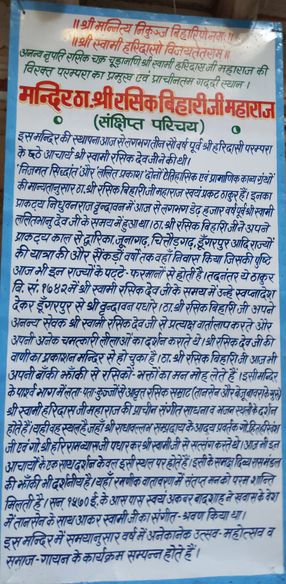 ॥श्रीमन्नित्य निकुञ्ज बिहारिणेनमः॥
॥श्री स्वामी हरिदासो विजयतेतराम्॥
अनन्य नृपति रसिक चक्र चूड़ामणि श्री स्वामी हरिदास जी महाराज की
विरक्त परम्परा का प्रमुख एवं प्राचीनतम गद्दी स्थान।
मन्दिर ठा. श्री रसिक बिहारी जी महाराज
(संक्षिप्त परिचय)
इस मन्दिर की स्थापना आज से लगभग तीन सौ वर्ष पूर्व श्री हरिदासी परम्परा
के छठे आचार्य श्री स्वामी रसिक देव जी ने की थी।
निजमत सिद्धांत और ललित प्रकाश दोनों ऐतिहासिक एवं प्रामाणिक काव्य ग्रंथों
की मान्यतानुसार ठा. श्री रसिक बिहारी जी महाराज स्वयं प्रकट ठाकुर हैं। इनका
प्राकट्य निधुवनराज वृन्दावन में आज से लगभग डेढ़ हजार वर्ष पूर्व श्री स्वामी
ललितभानु देव जी के समय में हुआ था। ठा. श्री रसिक बिहारी जी ने अपने
प्राकट्य काल से द्वारिका, जूनागढ़, चित्तौड़गढ़, डूँगरपुर आदि राज्यों
की यात्रा की और सैकड़ों वर्षों तक वहाँ निवास किया जिसकी पुष्टि
आज भी इन राज्यों के पट्टे-फरमानों से होती है। तदनंतर ये ठाकुर
वि. सं. १७४२ में श्री स्वामी रसिक देव जी के समय में उन्हें स्वप्नादेश
देकर डूँगरपुर से श्री वृन्दावन पधारे। ठा. श्री रसिक बिहारी जी अपने
अनन्य सेवक श्री स्वामी रसिक देव जी से प्रत्यक्ष वार्तालाप करते और
अपनी अनेक चमत्कारी लीलाओं का दर्शन कराते थे। श्री रसिक देव जी की
वाणी का प्रकाशन मन्दिर से हो चुका है। ठा. श्री रसिक बिहारी जी आज भी
अपनी बाँकी झाँकी से रसिकों भक्तों का मन मोह लेते हैं। इसी मन्दिर
के पार्श्व भाग में लता-पता कुञ्जों से आवृत रसिक सम्राट (तानसेन और बैजू बावरा के गुरु)
श्री स्वामी हरिदास जी महाराज की प्राचीन संगीत साधना व भजन स्थली के दर्शन
होते हैं। यही वह स्थल है जहाँ श्री राधावल्लभ सम्प्रदाय के आद्य प्रवर्तक गो. हित हरिवंश
जी एवं गो. श्री हरिराम व्यास जी पधारकर श्री स्वामी जी से सत्संग करते थे। आज भी इन
आचार्यों के एक साथ दर्शन केवल इसी स्थल पर होते हैं। इसी के सन्मुख दिव्य रास मंडल
की झाँकी भी दर्शनीय है। यहाँ रमणीक वातावरण में संतप्त मन को परम शान्ति
मिलती है। सन् १५७० ई. के आस पास स्वयं अकबर बादशाह ने सवास के वेश
में तानसेन के साथ आकर स्वामी जी का संगीत-श्रवण किया था।
इस मन्दिर में समयानुसार वर्ष में अनेकानेक उत्सव-महोत्सव व
समाज-गायन के कार्यक्रम सम्पन्न होते हैं।